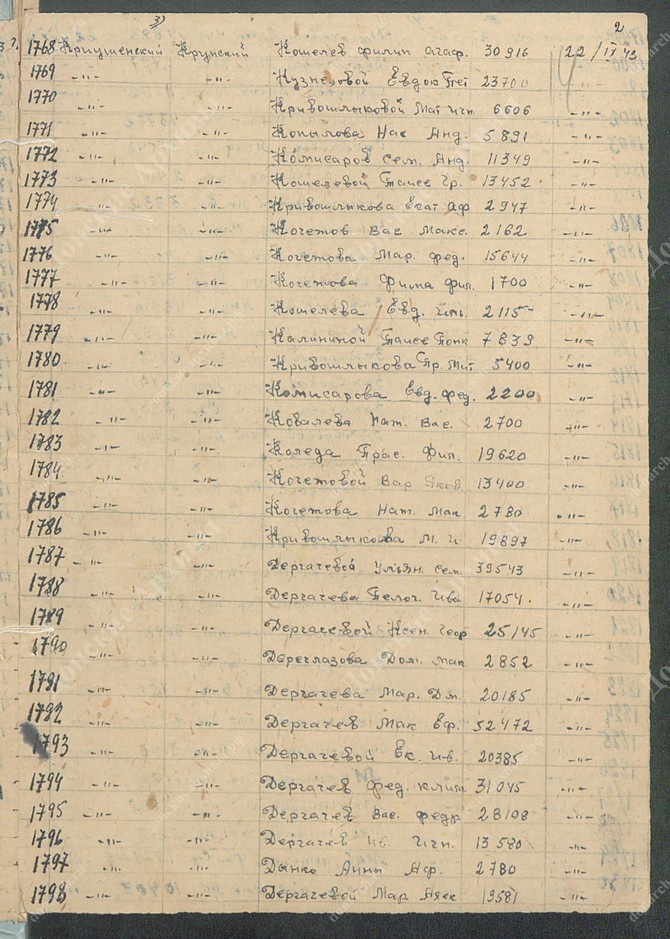 3) 2
1768 Криушенский Крупский Кошелев филип агаф. 30916 22/IX 43
1769 -"- -"- Кузнецовой Евдок Пет 23700 -"-
1770 Кривошлыковой Мат Ичн. 6606 -"-
1771 -"- -"- Копылова Нас Анд. 5891 -"-
1772 -"- -"- Комисаров Сем. Анд. 11349 -"-
1773 -"- -"- Кошелевой Таисе Гр. 13452 -"-
1774 -"- -"- Кривошлыкова Екат Аф 2947 -"-
1775 -"- -"- Кочетов Вас Макс. 2162 -"-
1776 -"- -"- Кочетова Мар. фед. 15644 -"-
1777 -"- -"- Кочетова Фил. 1700 -"-
1778 -"- -"- Кошелева Евд. 2115 -"-
1779 -"- -"- Калининой Таисе 7839 -"-
1780 -"- -"- Кривошлыкова Пр. Мит 5400 -"-
1781 -"- -"- Комисарова Евд. фед. 2200 -"-
1782 -"- -"- Ковалева Нат. Вас. 2700 -"-
1783 -"- -"- Коледа Прас. Фил. 19620 -"-
1784 -"- -"- Кочетовой Вар Яков. 13400 -"-
1785 -"- -"- Кочетова Нат. Мак 2780 -"-
1786 -"- -"- Кривошлыкова М. И 19897 -"-
1787 -"- -"- Дергачевой Ульян. Сем. 39543 -"-
1788 -"- -"- Дергачева Пелог. Ива 17054. -"-
1789 -"- -"- Дергачевой Ксен. Геор 25145 -"-
1790 -"- -"- Дом. Мак 2852 -"-
1791 -"- -"- Дергачева Мар. Дм. 20185 -"-
1792 -"- -"- Дергачев Мак Еф. 52472 -"-
1793 -"- -"- Дергачевой Ек. Ив. 20385 -"-
1794 -"- -"- Дергачев фед. клим. 31045 -"-
1795 -"- -"- Дергачев Вас. федр 28108 -"-
1796 -"- -"- Дергачев Ив. Игн. 13580 -"-
1797 -"- -"- Дынко Анны Аф. 2780 -"-
1798 -"- -"- Дергачевой Мар 13581 -"-